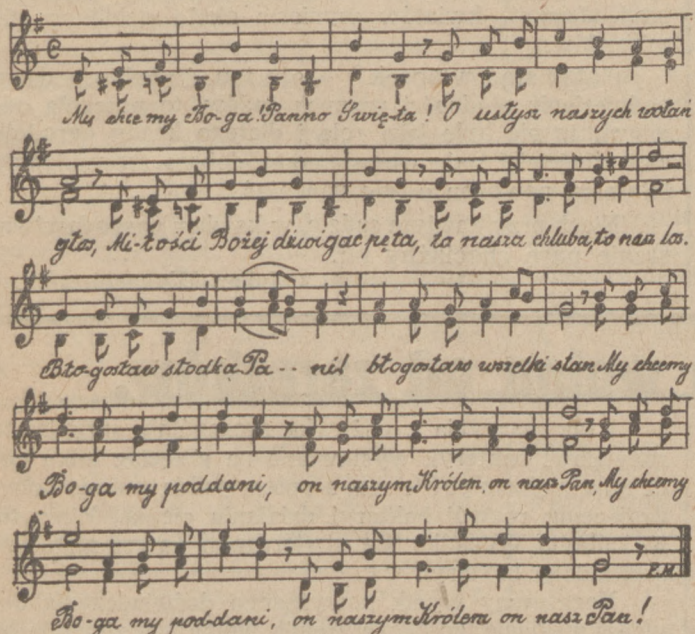 My chcemy Bo-ga! Panno Święta! O usłysz naszych wołań
głos, Mi-łości Bożej dźwigać pęta, to nasza chluba, to nasz los.
Bło-gosław słodka Pa-- ni! błogosław wszelki stan My chcemy
Bo-ga my poddani, on naszym Królem, on nasz Pan, My chcemy
Bo-ga my pod-dani, on naszym Królem on nasz Pan!
F.M.